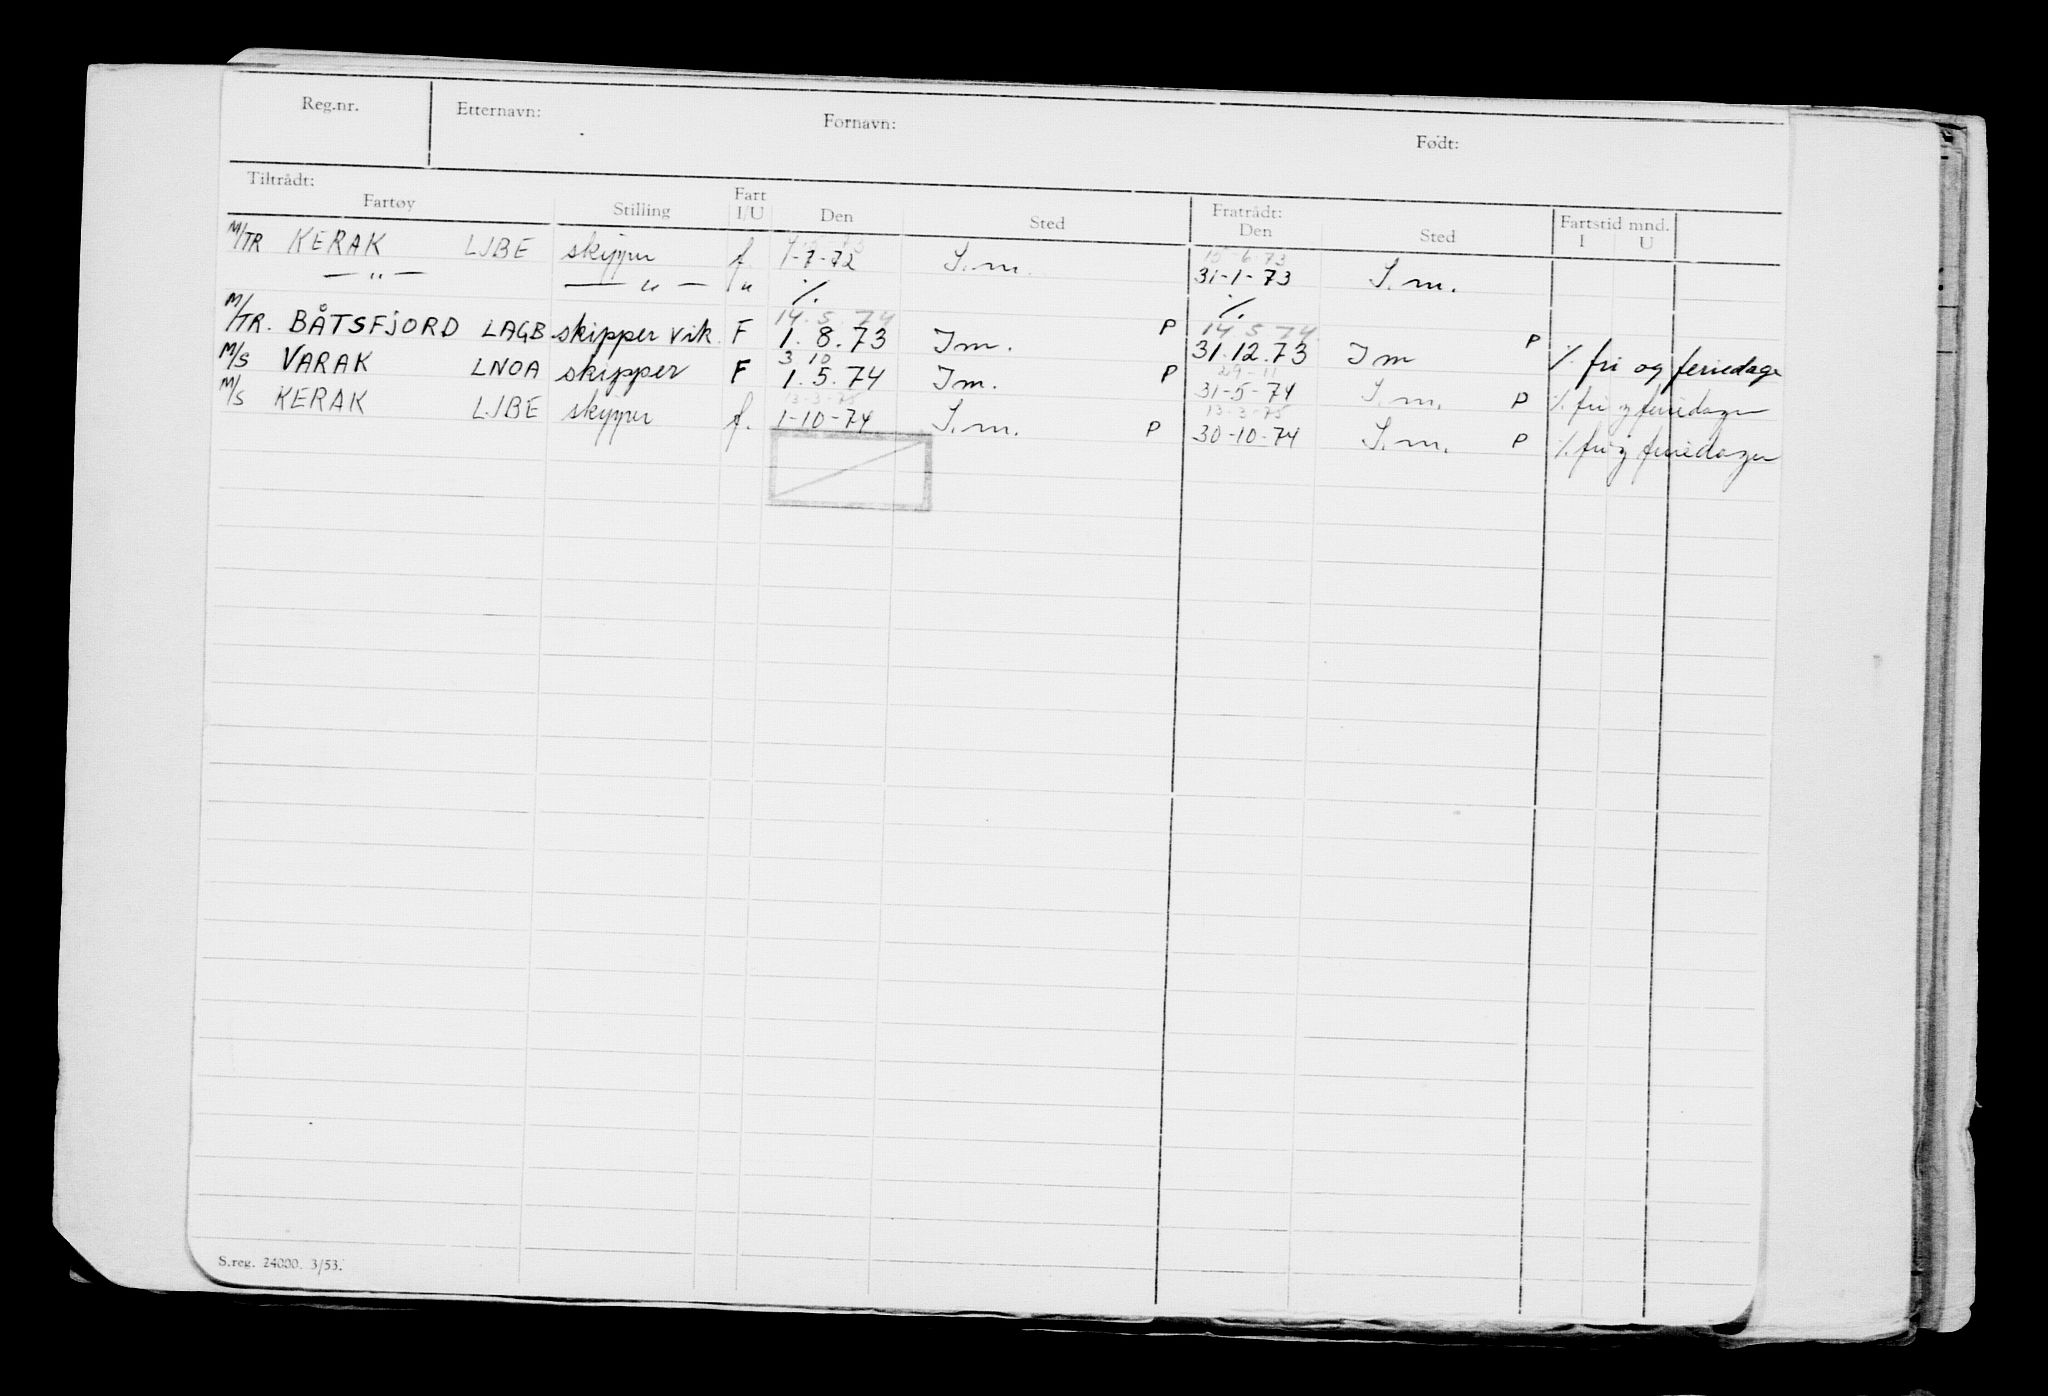 Reg.nr. Etternavn: Fornavn: Født:
Tiltrådt: Fratrådt: Fartstid mnd.
Fartøy Stilling Fart I/U Den Sted Den Sted I U
15-6-73
M/TR KERAK LJBE skipper f. 1-7-72 S.m. 31-1-73 S.m.
— " — — " — " ⁒ ⁒
14.5.74 14.5.74
M/TR. BÅTSFJORD LAGB skipper vik. F 1.8.73 Im. P 31.12.73 Im P ⁒ fri og feriedage
3 10 29-11
M/S VARAK LNOA skipper F 1.5.74 Im. P 31-5-74 S.m. P ⁒ fri og feriedager
13-3-75 13-3-75
M/S KERAK LJBE skipper f. 1-10-74 S.m. P 30-10-74 S.m. P ⁒ fri og feriedager
S.reg. 24000. 3/53.